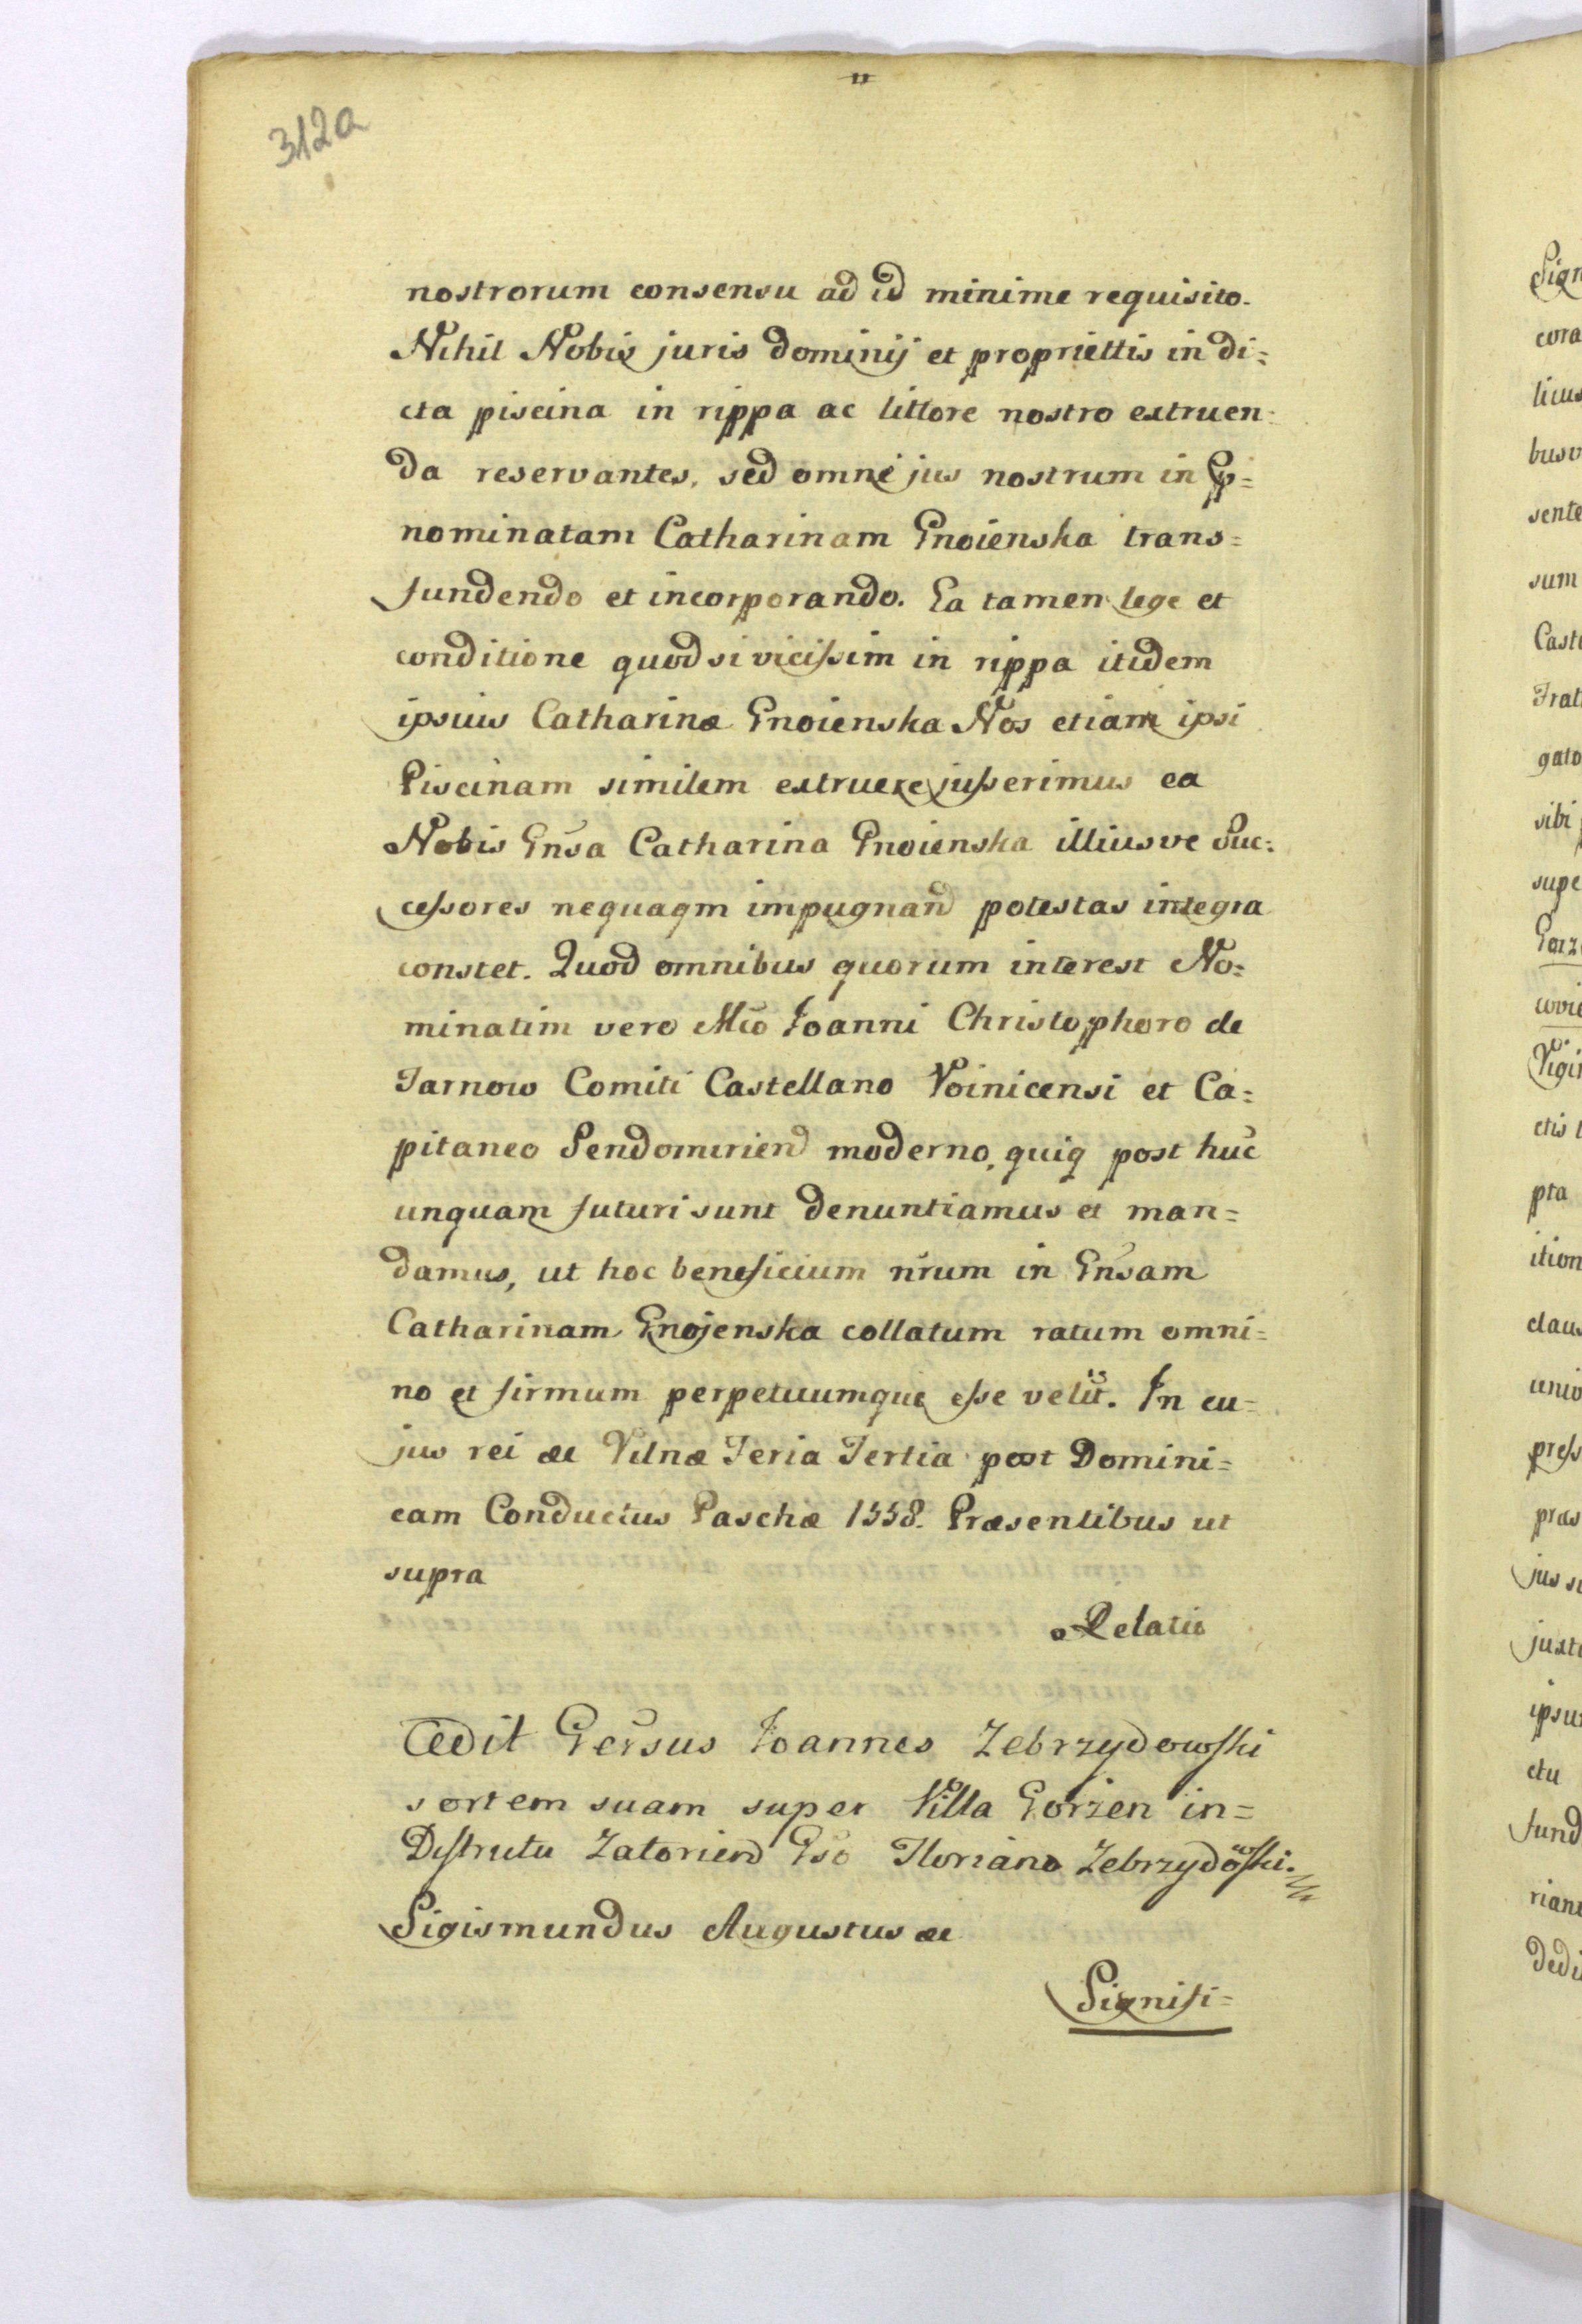 312a
nostrorum consensu ad id minime requisito.
Nihil Nobis juris dominij et propriettis in di=
cta piscina in rippa ac littore nostro extruen=
da reservantes, sed omne jus nostrum in P=
nominatam Catharinam Gnoienska trans=
fundendo et incorporando. Ea tamen lege et
conditione quod si vicissim in rippa itidem
ipsius Catharinæ Gnoienska Nos etiam ipsi
Piscinam similem extruere jusserimus ea
Nobis Gnsa Catharina Gnoienska illiusve Suc=
cessores nequaqm impugnand potestas integra
constet. Quod omnibus quorum interest No=
minatim vero Mco Joanni Christophoro de
Tarnow Comiti Castellano Voinicensi et Ca=
pitaneo Sendomirien moderno, quiq post huc
unquam futuri sunt denuntiamus et man=
damus, ut hoc beneficium nrum in Gnsam
Catharinam Gnojenska collatum ratum omni=
no et firmum perpetuumque esse velit. In cu=
jus rei &c Vilnæ Feria Tertia post Domini=
cam Conductus Paschæ 1558. Præsentibus ut
supra
Relatio
Cedit Gersus Joannes Zebrzydowski
sortem suam super Villa Gorzen in=
Districtu Zatorien Gso Floriano Zebrzydowski.
Sigismundus Augustus &c
Signifi=
Sign
cora
lius
busv
sente
sum
Caste
Frat
gato
sibi
supe
Gorz
Vigi
ctis
pta
ition
claus
univ
press
præs
jus
juxta
ipsu
ctu
fund
riano
dedi